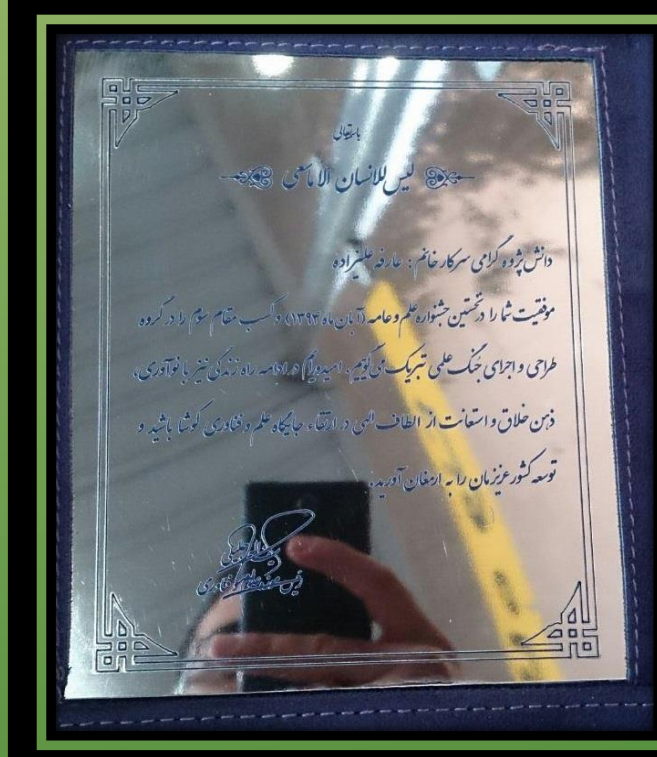 باسمه‌تعالی
لیس للانسان الا ماسعی
دانش پژوه گرامی سرکار خانم : عارفه علیزاده
موفقیت شما را در نخستین جشنواره علم و عامه (آبان ماه ۱۳۹۴) و کسب مقام سوم را در گروه
طراحی و اجرای جُنگ علمی تبریک می گوییم. امیدوارم در ادامه راه زندگی نیز با نوآوری،
ذهن خلاق و استعانت از الطاف الهی در ارتقاء جایگاه علم و فناوری کوشا باشید و
توسعه کشور عزیزمان را به ارمغان آورید.